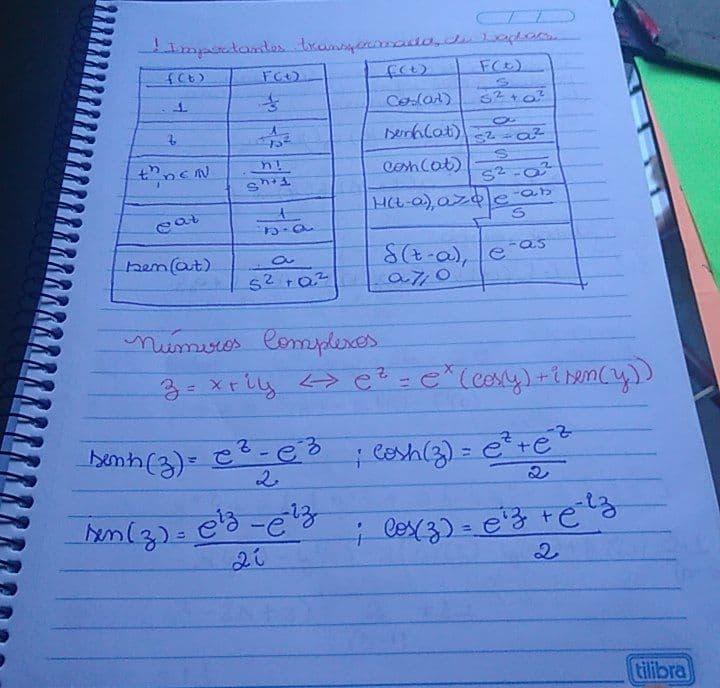 ! Importantes transformadas de Laplace
f(t) F(t)
1 1/s
t 1/s²
tⁿ, n ∈ ℕ n!/sⁿ⁺¹
e^at 1/s-a
sen(at) a/s² + a²
f(t) F(t)
Cos(at) s/s² + a²
senh(at) a/s² - a²
cosh(at) s/s² - a²
H(t-a), a≥0 e^-as/s
δ(t-a), e^-as
a≥0
Números Complexos
z = x + iy ↔ e^z = e^x (cos(y) + i sen(y))
senh(z) = e^z - e^-z/2 ; cosh(z) = e^z + e^-z/2
sen(z) = e^iz - e^-iz/2i ; cos(z) = e^iz + e^-iz/2
tilibra